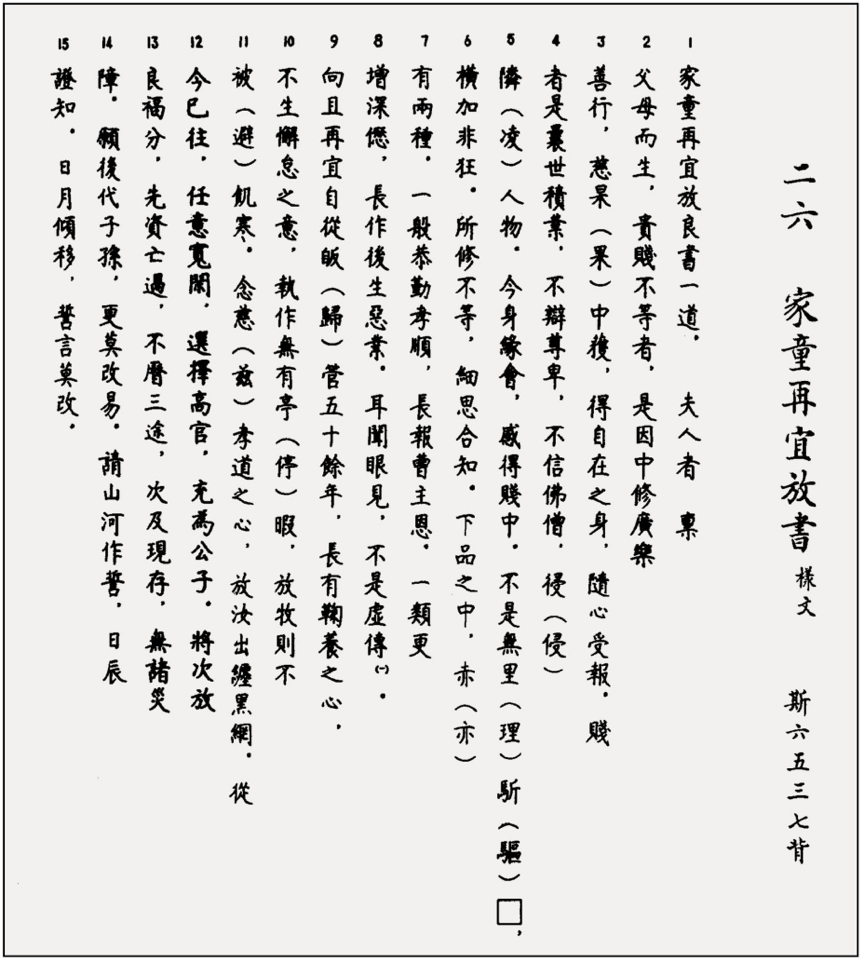 二六 家童再宜放書 樣文 斯六五三七背
1 家童再宜放良書一道. 夫人者 稟
2 父母而生,貴賤不等者,是因中修廣樂
3 善行,慈杲(果)中獲,得自在之身,隨心受報。賤
4 者是曩世積業,不辯尊卑,不信佛僧,𠊱(侵)
5 隣(凌)人物。今身緣會,感得賤中。不是無里(理)馸(驅)□,
6 橫加非狂。所修不等,細思合知。下品之中,赤(亦)
7 有兩種。一般恭勤孝順,長報曹主恩。一類更
8 增深𠎝,長作後生惡業。耳聞眼見,不是虛傳㈠。
9 向且再宜自從皈(歸)管五十餘年,長有鞠養之心,
10 不生懈怠之意,執作無有亭(停)暇,放牧則不
11 被(避)飢寒。念慈(兹)孝道之心,放汝出纏黑網。從
12 今已往,任意寬閑,選擇高官,充爲公子。將次放
13 良福分,先資亡過,不曆三途,次及現存,無諸災
14 障。願後代子孫,更莫改易。請山河作誓,日辰
15 證知。日月傾移,誓言莫改。